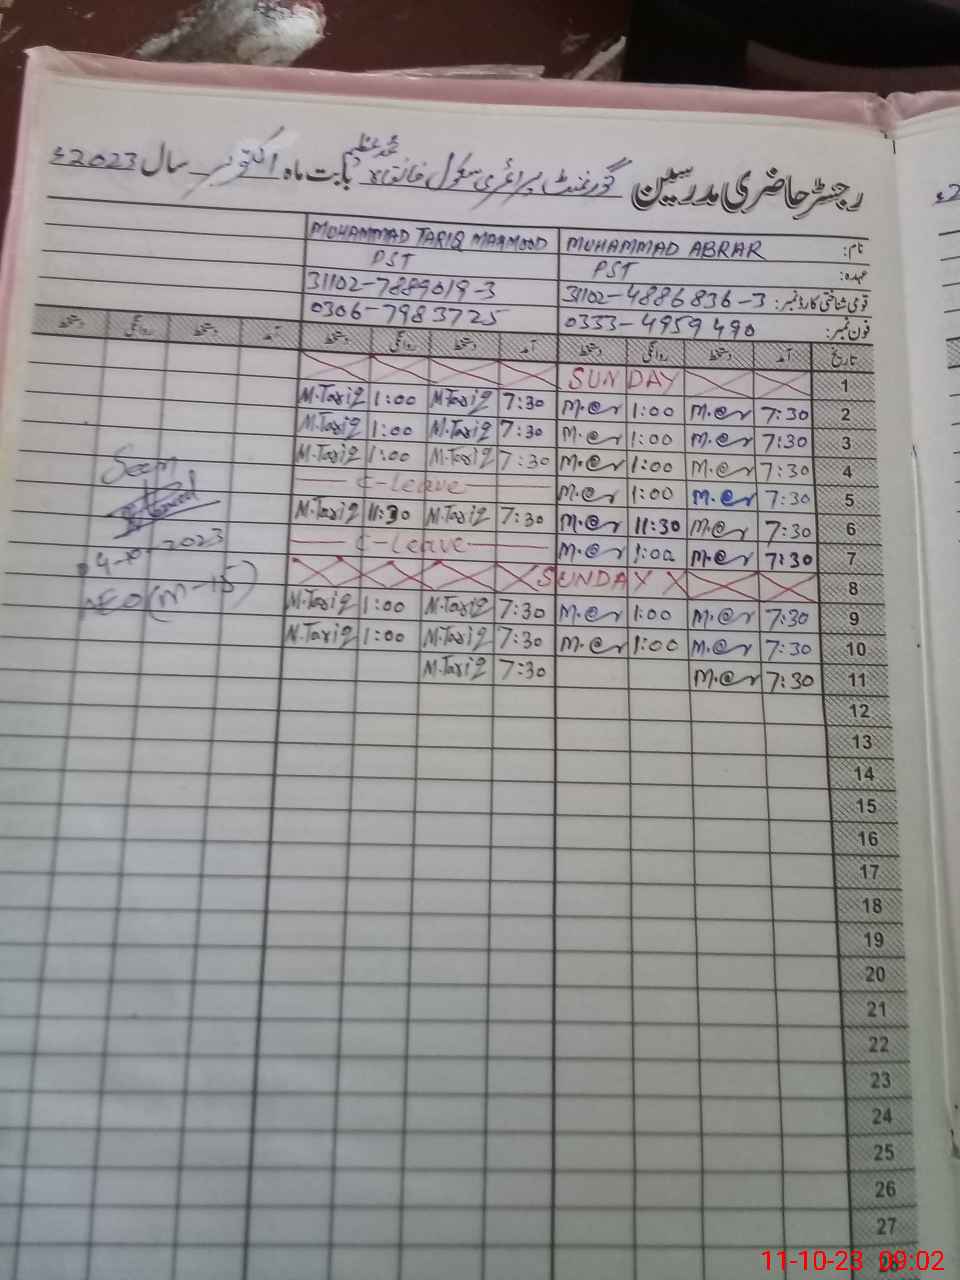 رجسٹر حاضری مدرسین گورنمنٹ پرائمری سکول خانقاہ محمد عظیم بابت ماہ اکتوبر سال 2023ء
نام: MUHAMMAD ABRAR MUHAMMAD TARIQ MAHMOOD
عہدہ: PST PST
قومی شناختی کارڈ نمبر: 31102-4886836-3 31102-7889019-3
فون نمبر: 0333-4959490 0306-7983725
تاریخ آمد دستخط روانگی دستخط آمد دستخط روانگی دستخط آمد دستخط روانگی دستخط
1 SUNDAY
2 7:30 M.@r 1:00 M.@r 7:30 M.Tariq 1:00 M.Tariq
3 7:30 M.@r 1:00 M.@r 7:30 M.Tariq 1:00 M.Tariq
4 7:30 M.@r 1:00 M.@r 7:30 M.Tariq 1:00 M.Tariq
5 7:30 M.@r 1:00 M.@r C-Leave
6 7:30 M.@r 11:30 M.@r 7:30 M.Tariq 11:30 M.Tariq
7 7:30 M.@r 1:00 M.@r C-Leave
8 SUNDAY
9 7:30 M.@r 1:00 M.@r 7:30 M.Tariq 1:00 M.Tariq
10 7:30 M.@r 1:00 M.@r 7:30 M.Tariq 1:00 M.Tariq
11 7:30 M.@r 7:30 M.Tariq
Seen
4-10-2023
AEO (M-15)
12
13
14
15
16
17
18
19
20
21
22
23
24
25
26
27
28
11-10-23 09:02